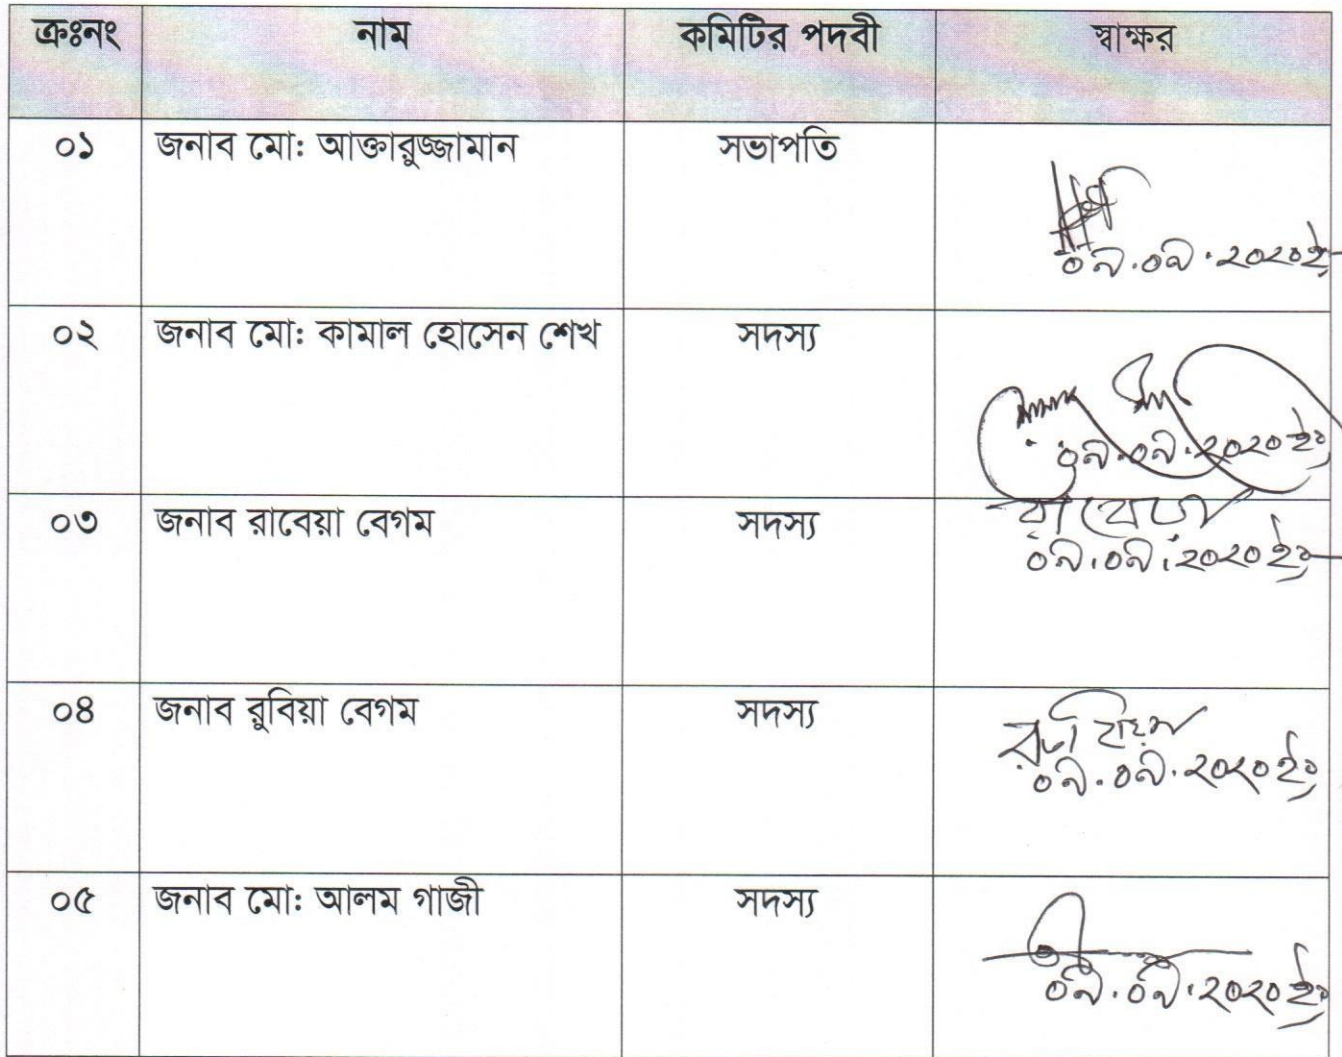 ক্রঃনং নাম কমিটির পদবী স্বাক্ষর
০১ জনাব মো: আক্তারুজ্জামান সভাপতি
০৯.০৯.২০২০ইং
০২ জনাব মো: কামাল হোসেন শেখ সদস্য
০৯.০৯.২০২০ইং
০৩ জনাব রাবেয়া বেগম সদস্য রাবেয়া
০৯.০৯.২০২০ইং
০৪ জনাব রুবিয়া বেগম সদস্য
০৯.০৯.২০২০ইং
০৫ জনাব মো: আলম গাজী সদস্য
০৯.০৯.২০২০ইং